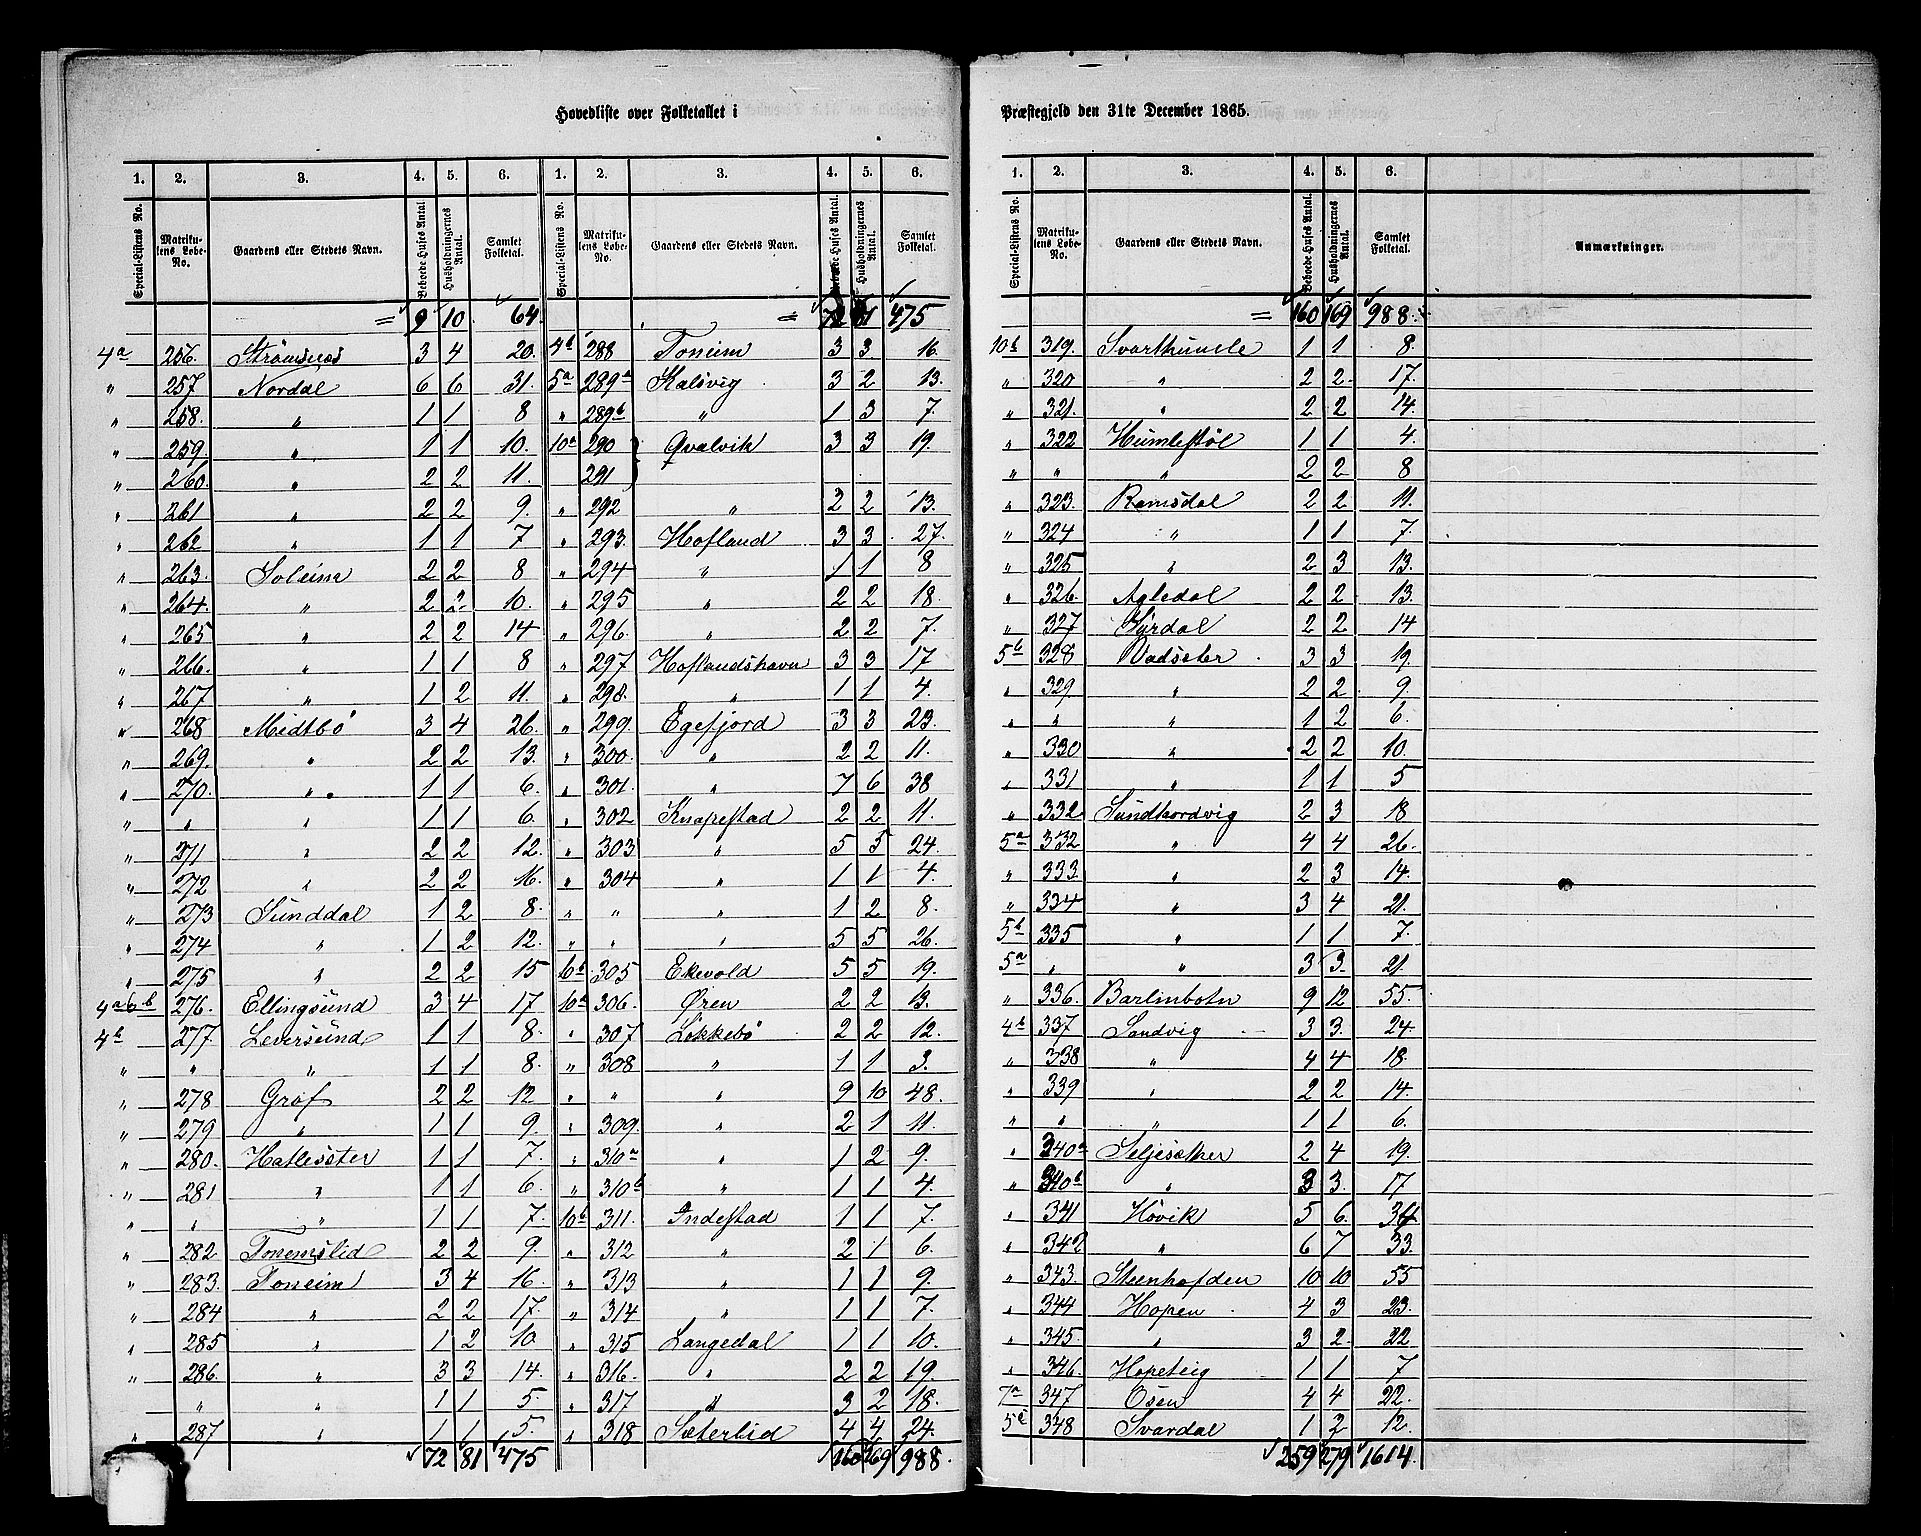 Hovedliste over Folketallet i
1. 2. 3. 4. 5. 6. 1. 2. 3. 4. 5. 6.
Special-Listens No. Matrikulens Løbe-No. Gaardens eller Stedets Navn. Beboede Huses Antal Husholdningernes Antal. Samlet Folketal. Special-Listens No. Matrikulens Løbe-No. Gaardens eller Stedets Navn. Beboede Huses Antal. Husholdningernes Antal. Samlet Folketal.
= 9 10 64 = 72 81 475
4a 256. Strømsnes 3 4 20. 4b 288 Toneim 3 3. 16.
" 257 Nordal 6 6 31. 5a 289a Kalsvig 3 2 13.
" 258. " 1 1 8 " 289b " 1 3 7.
" 259. " 1 1 10. 10a 290 Qvalvik 3 3 19.
" 260. " 2 2 11. 291
" 261 " 2 2 9. " 292 " 2 2 13.
" 262 " 1 1 7 " 293. Hofland 3 3. 27.
" 263. Soleim 2 2 8 " 294 " 1 1 8
" 264. " 2 2 10. " 295 " 2 2 18.
" 265 " 2 2 14 " 296. " 2 2 7.
" 266. " 1 1 8 " 297 Hoflandshavn 3 3 17
" 267 " 1 2 11. " 298. " 1 1 4.
" 268 Midtbö 3 4 26. " 299. Egefjord 3 3 23.
" 269. " 2 2 13. " 300. " 2 2 11.
" 270. " 1 1 6. " 301. " 7 6 38
" " " 1 1 6. " 302 Knapestad 2 2 11.
" 271 " 2 2 12. " 303 " 5 5 24.
" 272 " 2 2 16. " 304 " 1 1 4.
" 273 Sunddal 1 2 8. " " " 1 2 8.
" 274 " 1 2 12. " " " 5 5 26.
" 275 " 2 2 15 6b 305 Ekevold 5 5 19.
4a6b 276. Ellingsund 3 4 17 10a 306. Øren 2 2 13.
4b 277. Leversund 1 1 8. " 307 Lökkebö 2 2 12.
" " " 1 1 8. " 308 " 1 1 3.
" 278 Gröf 2 2 12 " " " 9 10 48.
" 279 " 1 1 9. " 309. " 2 1 11.
" 280. Hatleseter 1 1 7. " 310a " 1 2 9.
" 281 " 1 1 6. " 310b " 1 1 4.
" " " 1 1 7. 10b 311. Indestad 1 1 7.
" 282 Tonemslid 2 2 9. " 312 " 2 1 6.
" 283. Toneim 3 4 16. " 313 " 1 1 9.
" 284 " 2 2 17. " 314 " 1 1 7.
" 285 " 1 2 10 " 315 Langedal 1 1 10.
" 286. " 3 3 14. " 316. " 2 2 19.
" " " 1 1 5. " 317 " 3 2 18.
" 287 " 1 1 5. " 318 Sæterlid 4 4 24.
72 81 475 160 169 988.
Præstegjeld den 31te December 1865.
1. 2. 3. 4. 5. 6.
Special-Listens No. Matrikulens Løbe-No. Gaardens eller Stedets Navn. Beboede Huses Antal. Husholdningernes Antal. Samlet Folketal. Anmærkninger.
= 160 169 988.
10b 319. Svarthumle 1 1 8.
" 320 " 2 2. 17.
" 321. " 2 2 14.
" 322 Humlestöl 1 1 4.
" " " 2 2 8
" 323. Ramsdal 2 2 11.
" 324 " 1 1 7.
" 325 " 2 3 13.
" 326. Agledal 2 2 13.
" 327 Syrdal 2 2 14
5b 328 Vadseter 3 3 19.
" 329 " 2 2 9.
" " " 1 2 6.
" 330 " 2 2 10.
" 331 " 1 1 5
" 332 Sundhordvig 2 3 18
5a 332 " 4 4 26.
" 333. " 2 3 14.
" 334 " 3 4 21.
5b 335 " 1 1 7.
5a " " 3 3. 21.
" 336. Barlinbotn 9 12 55.
4b 337 Sandvig 3 3. 24.
" 338 " 4 4 18.
" 339 " 2 2 14.
" " " 1 1 6.
" 340a Seljesæther 2 4 19.
" 340b " 3 3. 17
" 341 Hövik 5 6. 34
" 342 " 6 7 33.
" 343. Steenhofden 10 10 55
" 344 Hopen 4 3 23.
" 345. " 3 2. 22
" 346. Hopeteig 1 1 7
7a 347 Osen 4 4 22.
5c 348 Svardal 1 2 12.
259 279 1614.